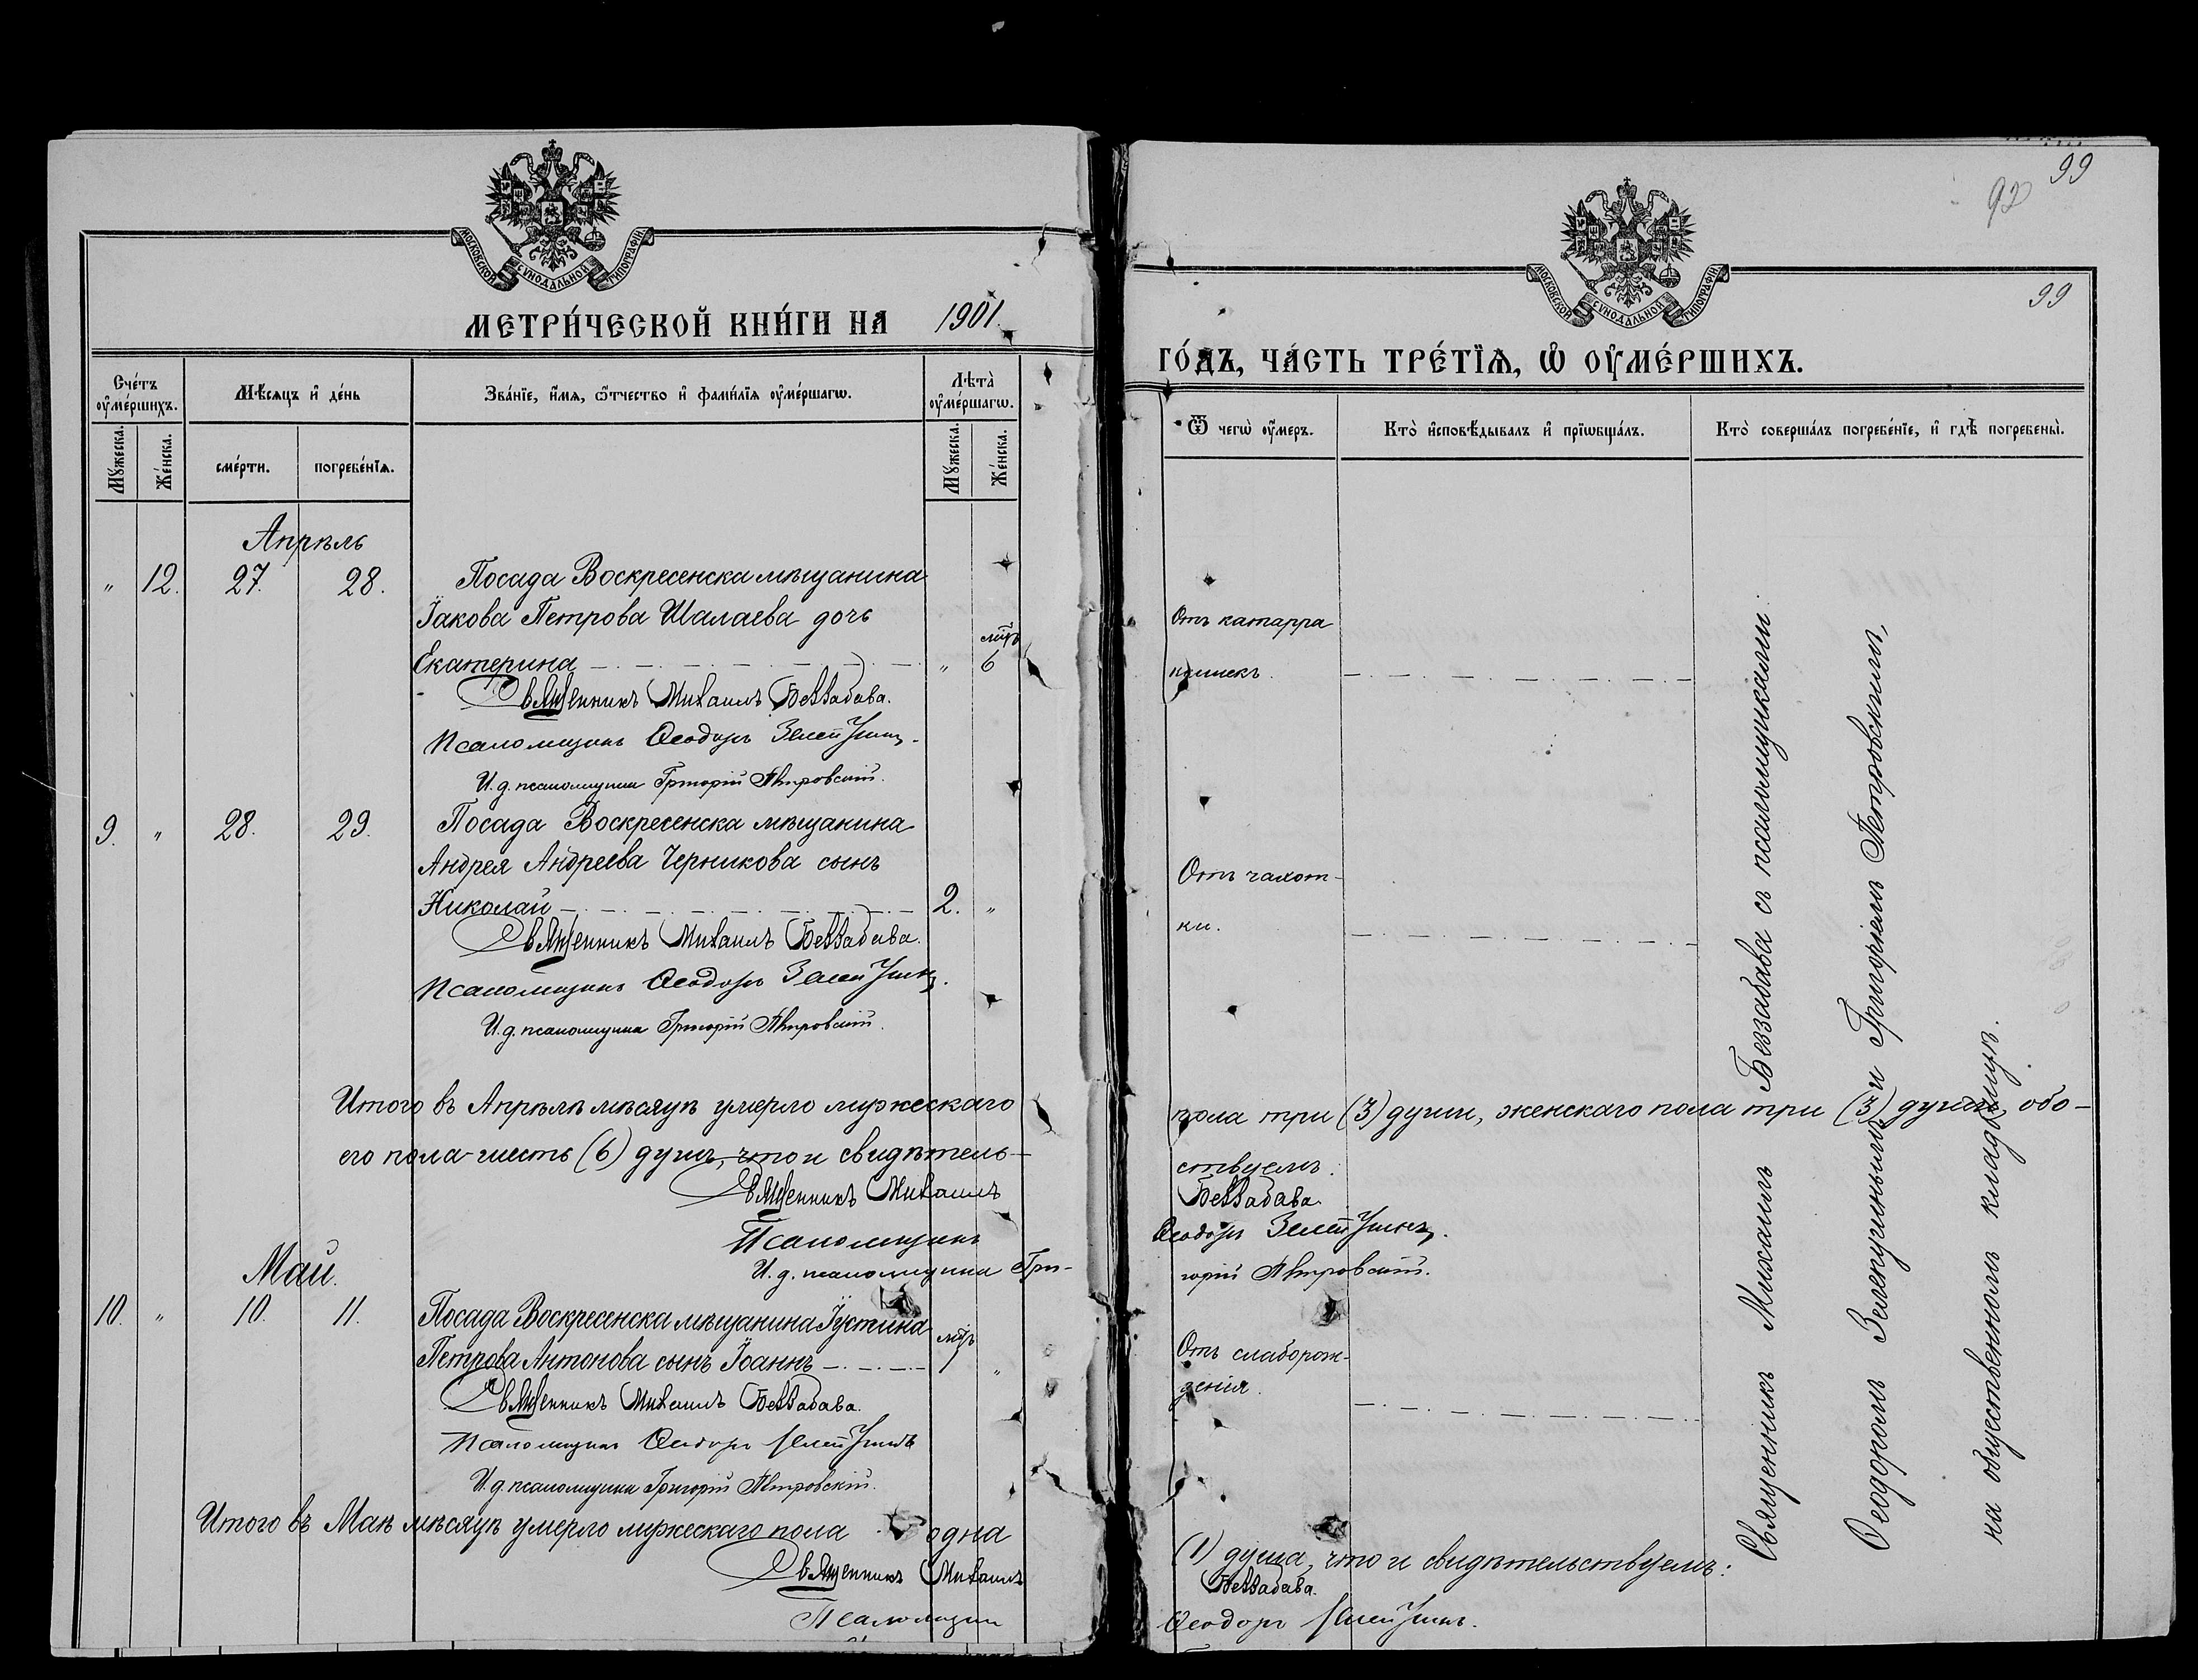 МОСКОВСКОЙ СѴНОДАЛЬНОЙ ТИПОГРАФІИ
МЕТРИ́ЧЕСКОЙ КНИ́ГИ НА 1901.
Сче́тъ ᲂу҆ме́ршихъ.
Мѣ́сяцъ и҆ де́нь
Зва́нїе, и҆́мя, ѻ҆́тчество и҆ фами́лїя ᲂу҆ме́ршагѡ.
Лѣта̀ ᲂу҆ме́ршагѡ.
Мꙋ́жеска.
Же́нска.
сме́рти.
погребе́нїѧ.
Мꙋ́жеска.
Же́нска.
Апрѣль
" 12. 27. 28. Посада Воскресенска мѣщанина
Іакова Петрова Шалаева дочь
Екатерина " 6 мц̃ъ
Священникъ Михаилъ Беззабава.
Псаломщикъ Ѳеодоръ
И. д. псаломщика Григорій Петровскій.
9. " 28. 29. Посада Воскресенска мѣщанина
Андрея Андреева Черникова сынъ
Николай 2. "
Священникъ Михаилъ Беззабава.
Псаломщикъ Ѳеодоръ
И. д. псаломщика Григорій Петровскій.
Итого въ Апрѣлѣ мѣсяцѣ умерло мужескаго
его пола шесть (6) душъ, что и свидѣтель-
Священникъ Михаилъ
Псаломщикъ
И. д. псаломщика Гри-
Май.
10. " 10. 11. Посада Воскресенска мѣщанина Іустина
Петрова Антонова сынъ Іоаннъ 1 "
Священникъ Михаилъ Беззабава.
Псаломщикъ Ѳеодоръ
И. д. псаломщика Григорій Петровскій.
Итого въ Маѣ мѣсяцѣ умерло мужескаго пола одна
Священникъ Михаилъ
Псаломщикъ
99
92
99
МОСКОВСКОЙ СѴНОДАЛЬНОЙ ТИПОГРАФІИ
ГО́ДЪ, ЧА́СТЬ ТРЕ́ТЇѦ, Ѡ҆ ОУ҆МЕ́РШИХЪ.
Ѿ чегѡ̀ ᲂу҆́меръ.
Кто̀ и҆сповѣ́дывалъ и҆ прїѡбща́лъ.
Кто̀ соверша́лъ погребе́нїе, и҆ гдѣ̀ погребены̀.
Отъ катарра
кишекъ.
Отъ чахот-
ки.
пола три (3) души, женскаго пола три (3) души, обо-
ствуемъ:
Беззабава.
Ѳеодоръ
горій Петровскій.
Отъ слаборож-
денія.
(1) душа, что и свидѣтельствуемъ:
Беззабава.
Ѳеодоръ
Священникъ Михаилъ Беззабава съ псаломщиками
Ѳеодоромъ Зеленушнымъ и Григоріемъ Петровскимъ,
на общественномъ кладбищѣ.